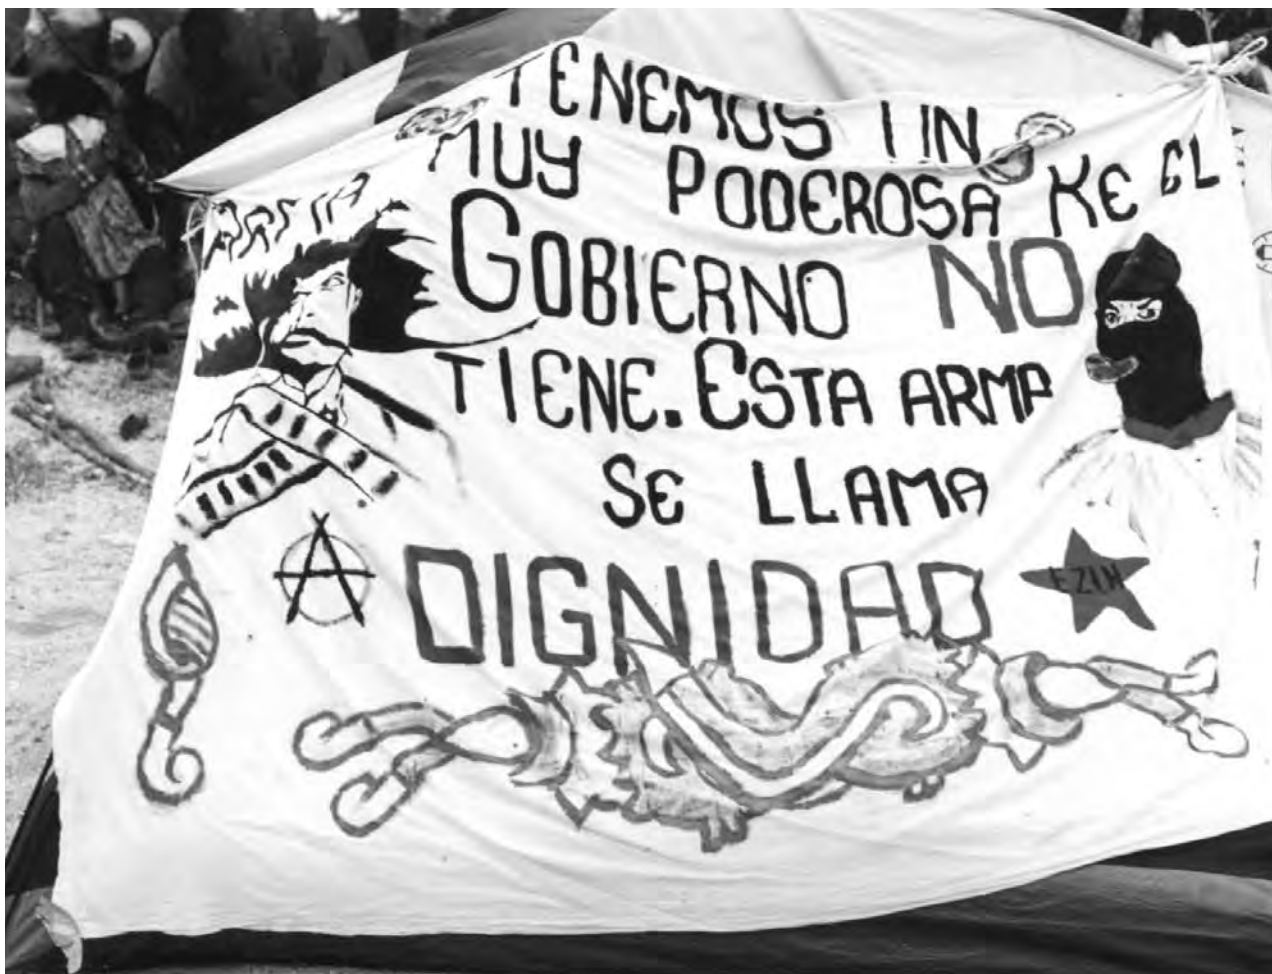 TENEMOS UN
MUY PODEROSA KE EL
GOBIERNO NO
TIENE. ESTA ARMA
SE LLAMA
DIGNIDAD
A
EZLN